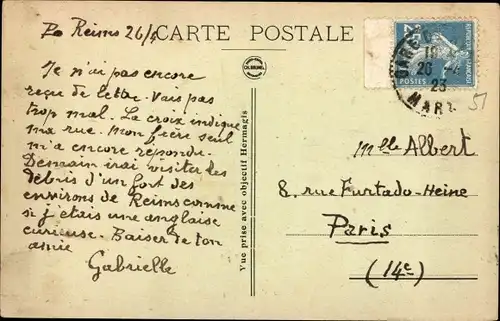 Reims 26/4
CARTE POSTALE
Je n'ai pas encore
reçue de lettre. Vais pas
trop mal. La croix indique
ma rue. Mon frère seul
m'a encore répondu.
Demain irai visiter des
débris d'un fort des
environs de Reims comme
si j'étais une anglaise
curieuse. Baiser de ton
amie
Gabrielle
Vue prise avec objectif Hermagis
POSTES
26
23
Mlle Albert
8, rue Furtado-Heine
Paris
(14e)